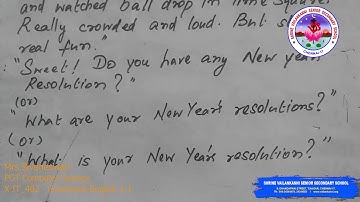 and watched ball drop in Time Square.
Really crowded and loud. But so
real fun."
"Sweet! Do you have any New year
Resolution?"
(or)
"What are your New Year's resolutions?"
(or)
"What is your New Year's resolution?"
PGT Computer Science
SHRINE VAILANKANNI SENIOR SECONDARY SCHOOL